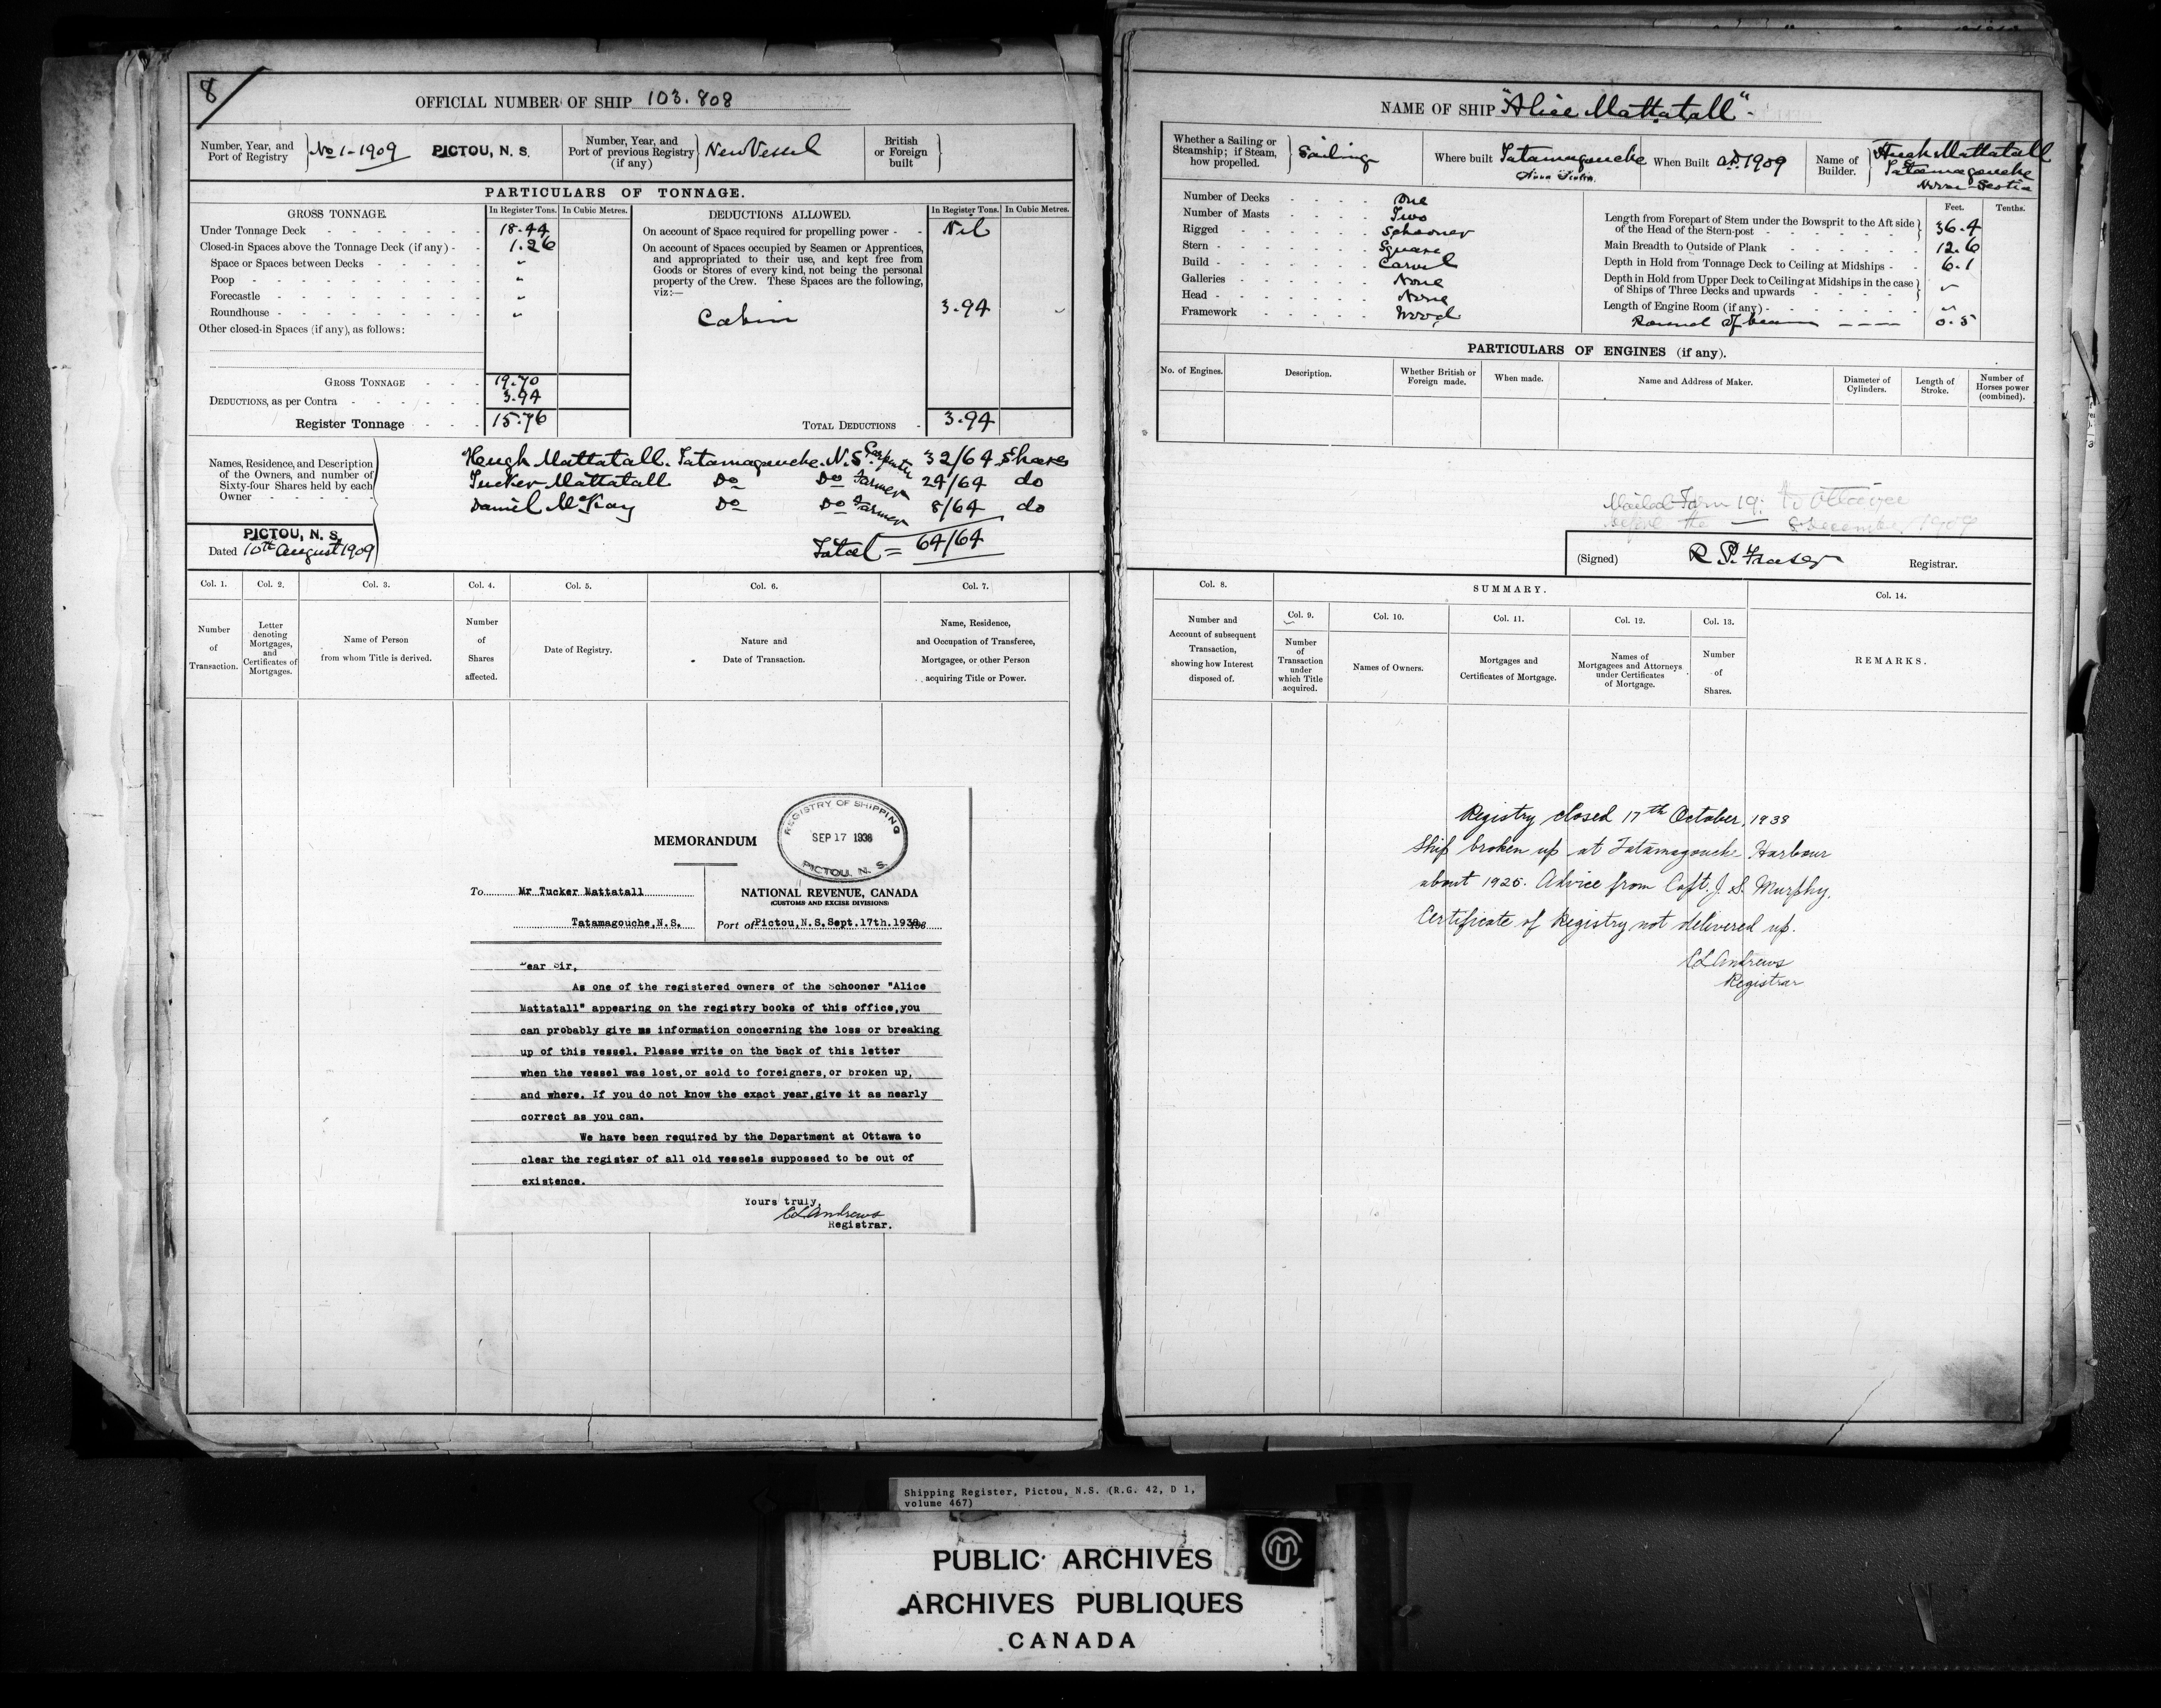 8
OFFICIAL NUMBER OF SHIP 103.808
Number, Year, and Port of Registry No 1-1909 PICTOU, N. S.
Number, Year, and Port of previous Registry (if any) New Vessel
British or Foreign built
PARTICULARS OF TONNAGE.
GROSS TONNAGE. In Register Tons. In Cubic Metres.
Under Tonnage Deck 18.44
Closed-in Spaces above the Tonnage Deck (if any) 1.26
Space or Spaces between Decks "
Poop "
Forecastle "
Roundhouse "
Other closed-in Spaces (if any), as follows:
GROSS TONNAGE 19.70
DEDUCTIONS, as per Contra 3.94
Register Tonnage 15.76
DEDUCTIONS ALLOWED. In Register Tons. In Cubic Metres.
On account of Space required for propelling power Nil
On account of Spaces occupied by Seamen or Apprentices,
and appropriated to their use, and kept free from
Goods or Stores of every kind, not being the personal
property of the Crew. These Spaces are the following,
viz:—
Cabin 3.94
TOTAL DEDUCTIONS 3.94
Names, Residence, and Description
of the Owners, and number of
Sixty-four Shares held by each
Owner
Hugh Mattatall. Tatamagouche. N.S. Carpenter 32/64 Shares
Tucker Mattatall Do Do Farmer 24/64 do
Daniel McKay Do Do Farmer 8/64 do
Total = 64/64
PICTOU, N. S.
Dated 10th August 1909
Col. 1. Col. 2. Col. 3. Col. 4. Col. 5. Col. 6. Col. 7.
Number of Transaction.
Letter denoting Mortgages, and Certificates of Mortgages.
Name of Person from whom Title is derived.
Number of Shares affected.
Date of Registry.
Nature and Date of Transaction.
Name, Residence, and Occupation of Transferee, Mortgagee, or other Person acquiring Title or Power.
MEMORANDUM
REGISTRY OF SHIPPING
SEP 17 1938
PICTOU, N. S.
To Mr Tucker Mattatall
Tatamagouche,N.S.
NATIONAL REVENUE, CANADA
(CUSTOMS AND EXCISE DIVISIONS)
Port of Pictou,N.S.Sept.17th.1938.
Dear Sir,
As one of the registered owners of the Schooner "Alice
Mattatall" appearing on the registry books of this office,you
can probably give me information concerning the loss or breaking
up of this vessel. Please write on the back of this letter
when the vessel was lost,or sold to foreigners,or broken up,
and where. If you do not know the exact year,give it as nearly
correct as you can.
We have been required by the Department at Ottawa to
clear the register of all old vessels suppossed to be out of
existence.
Yours truly,
CLAndrews
Registrar.
NAME OF SHIP "Alice Mattatall"
Whether a Sailing or Steamship; if Steam, how propelled. Sailing
Where built Tatamagouche Nova Scotia
When Built AD. 1909
Name of Builder. Hugh Mattatall Tatamagouche Nova-Scotia
Number of Decks One
Number of Masts Two
Rigged Schooner
Stern Square
Build Carvel
Galleries None
Head None
Framework Wood
Feet. Tenths.
Length from Forepart of Stem under the Bowsprit to the Aft side of the Head of the Stern-post 36.4
Main Breadth to Outside of Plank 12.6
Depth in Hold from Tonnage Deck to Ceiling at Midships 6.1
Depth in Hold from Upper Deck to Ceiling at Midships in the case of Ships of Three Decks and upwards "
Length of Engine Room (if any) "
Round of beam 0.5
PARTICULARS OF ENGINES (if any).
No. of Engines. Description. Whether British or Foreign made. When made. Name and Address of Maker. Diameter of Cylinders. Length of Stroke. Number of Horses power (combined).
Mailed Form 19. to Ottawa
December 1909
(Signed) R. P. Fraser Registrar.
Col. 8. SUMMARY. Col. 14.
Col. 9. Col. 10. Col. 11. Col. 12. Col. 13.
Number and Account of subsequent Transaction, showing how Interest disposed of.
Number of Transaction under which Title acquired.
Names of Owners.
Mortgages and Certificates of Mortgage.
Names of Mortgagees and Attorneys under Certificates of Mortgage.
Number of Shares.
REMARKS.
Registry closed 17th October, 1938
Ship broken up at Tatamagouche Harbour
about 1925. Advice from Capt. J. S. Murphy.
Certificate of Registry not delivered up.
CLAndrews
Registrar
Shipping Register, Pictou, N.S. (R.G. 42, D 1,
volume 467)
PUBLIC ARCHIVES
ARCHIVES PUBLIQUES
CANADA